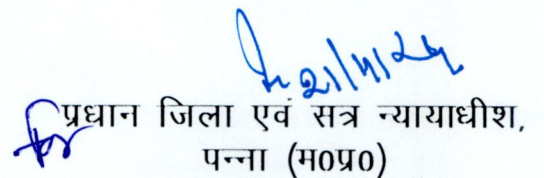 प्रधान जिला एवं सत्र न्यायाधीश,
पन्ना (म०प्र०)